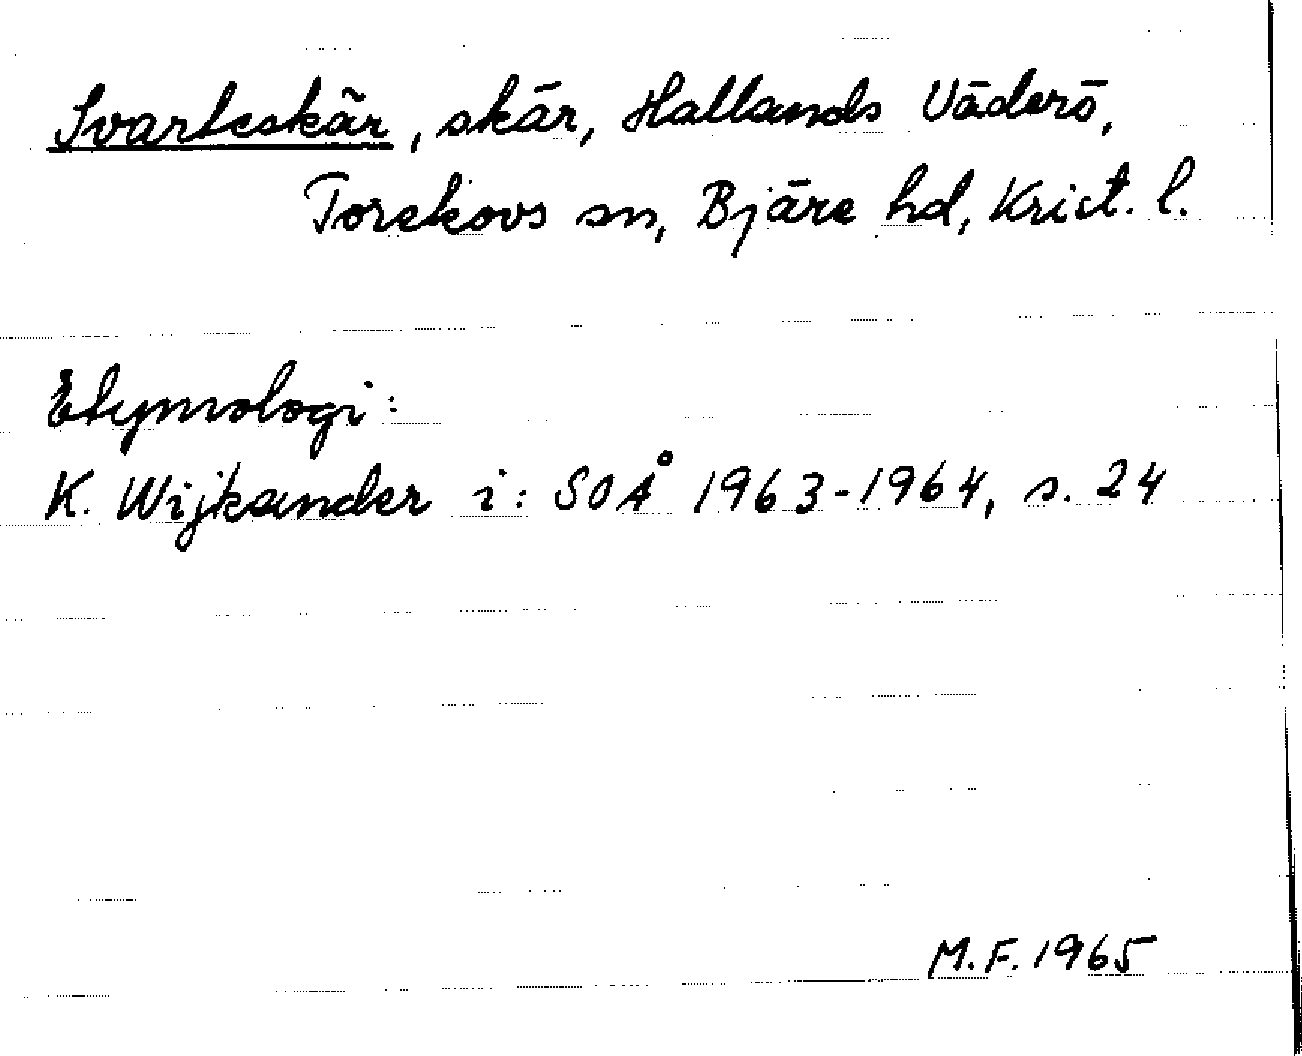 Svarteskär, skär, Hallands Väderö,
Torekovs sn, Bjäre hd, Krist. l.
Etymologi:
K. Wijkander i: SOÅ 1963-1964, s. 24
M.F. 1965